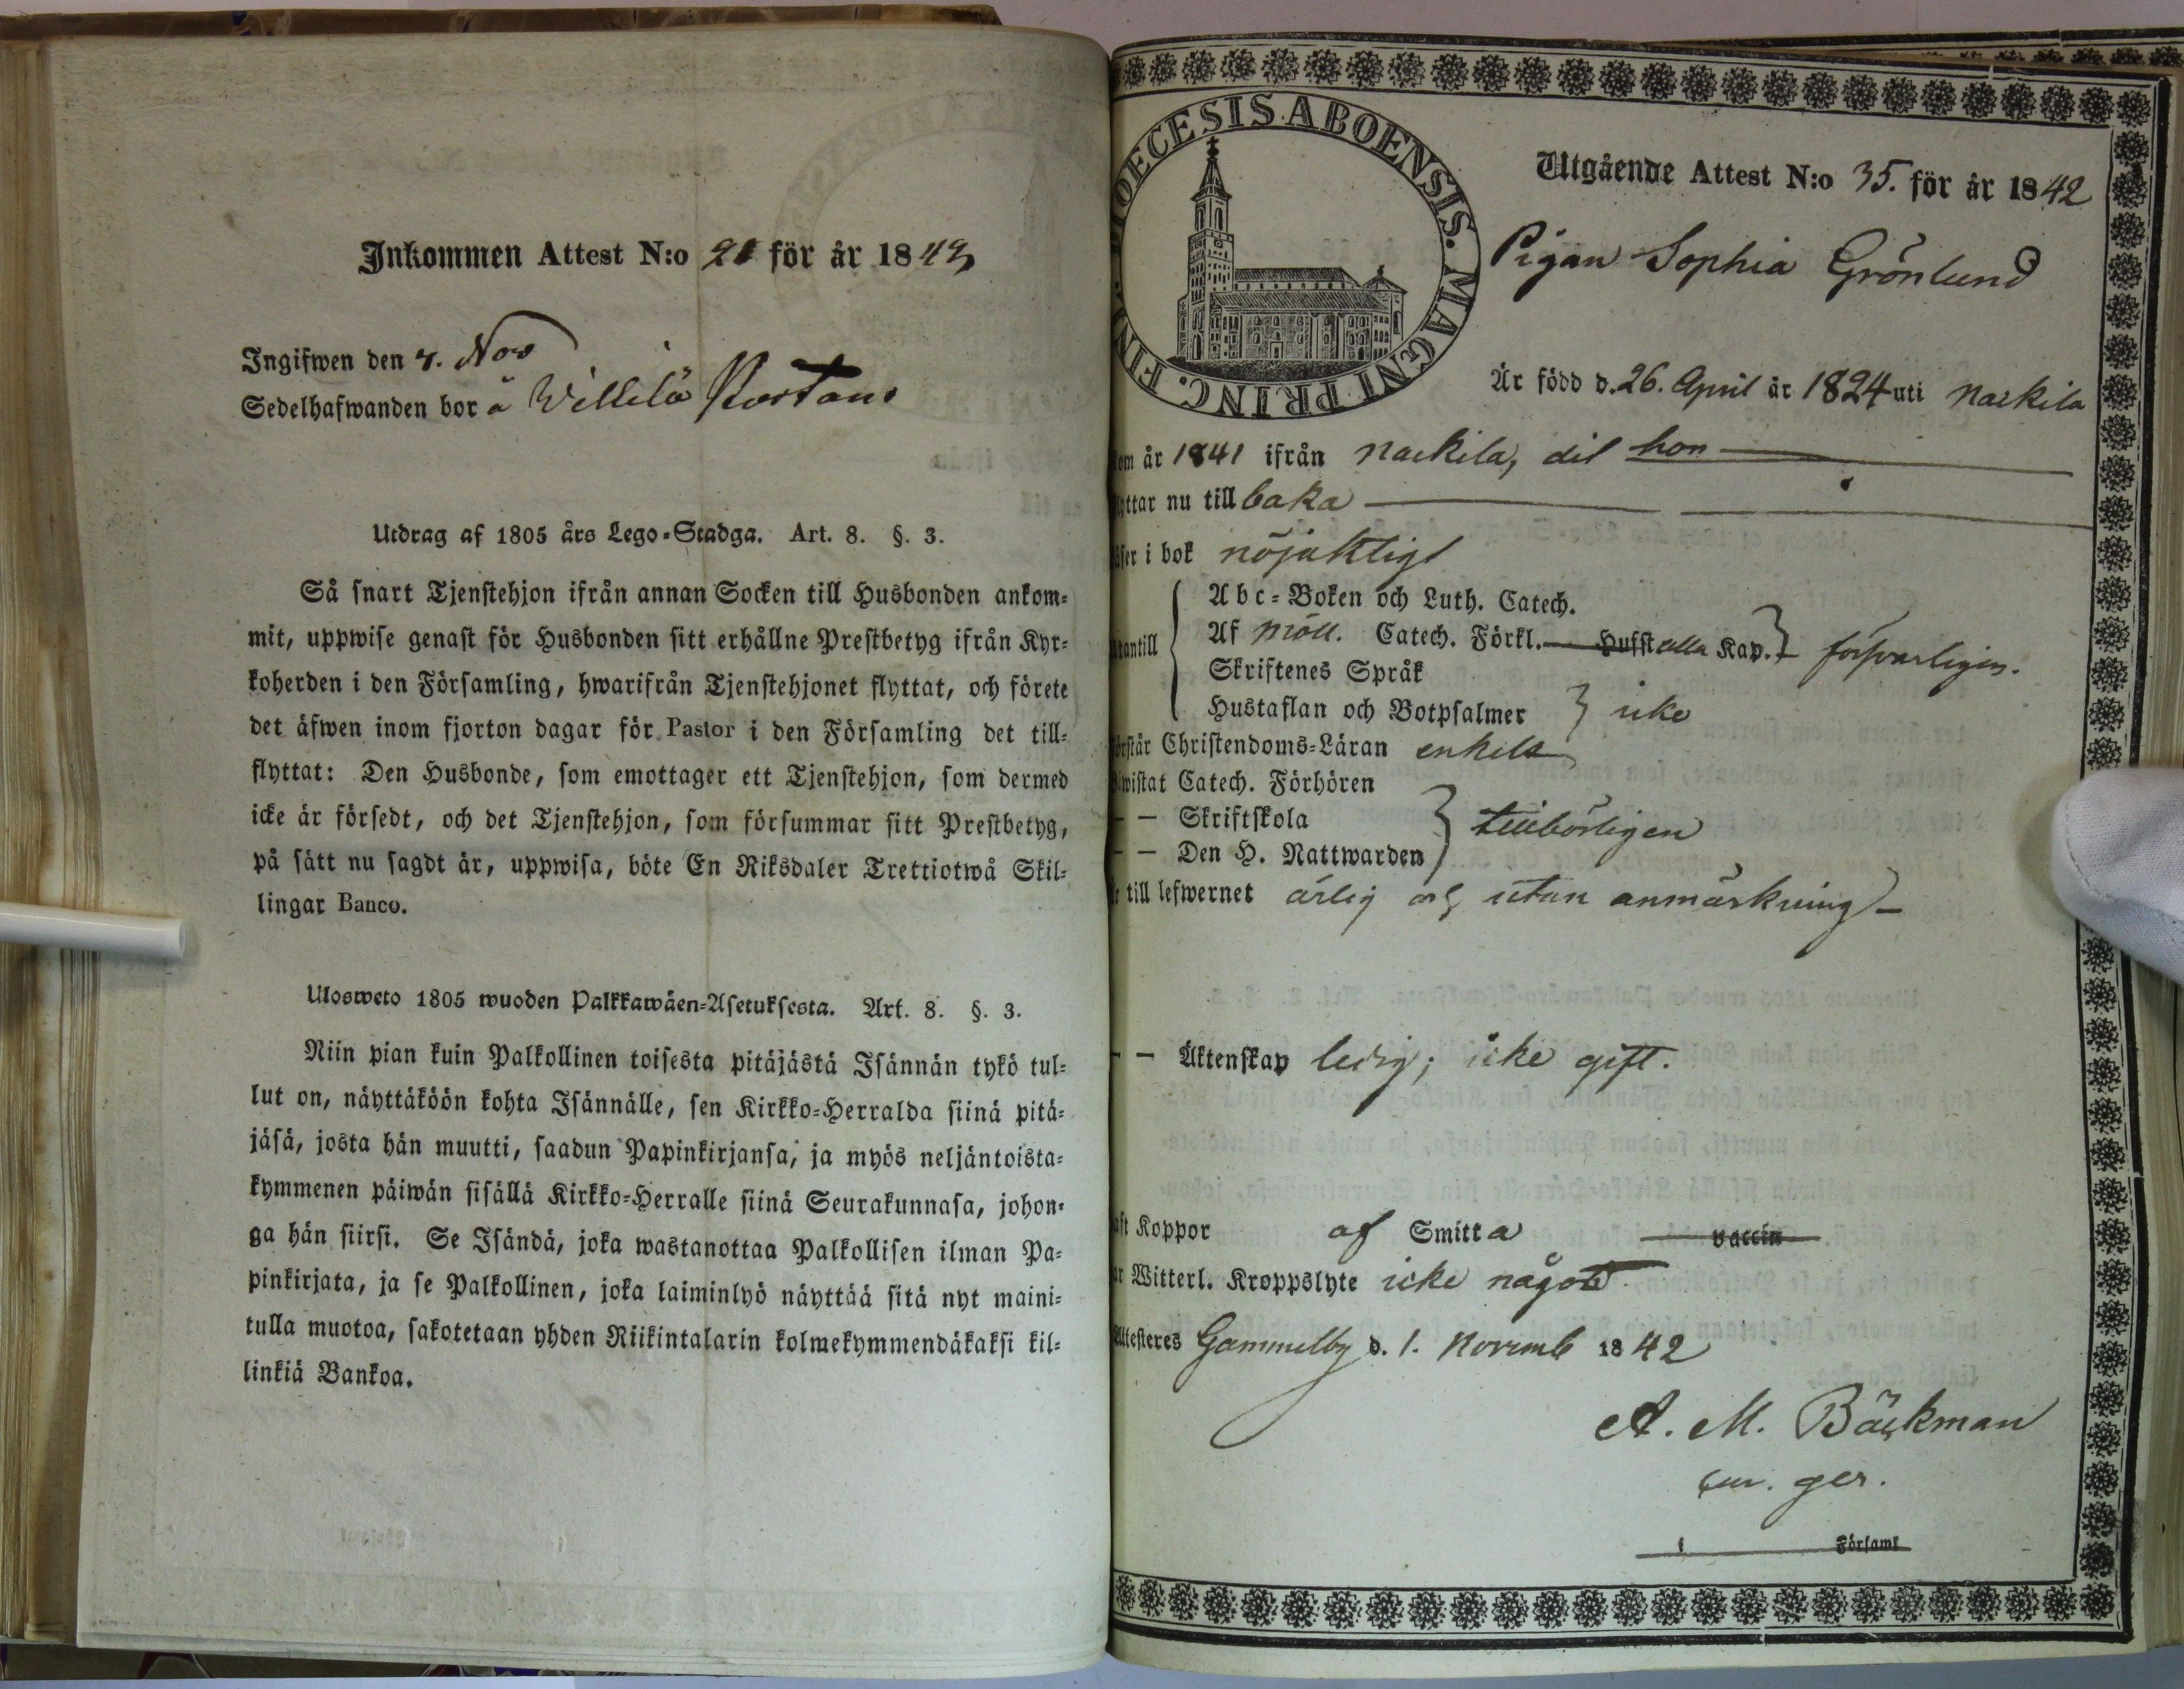 Inkommen Attest N:o 21 för år 1842
Ingifwen den 4. Nov
Sedelhafwanden bor å Willilä
Utdrag af 1805 års Lego-Stadga. Art. 8. §. 3.
Så snart Tjenstehjon ifrån annan Socken till Husbonden ankom-
mit, uppwise genast för Husbonden sitt erhållne Prestbetyg ifrån Kyr-
koherden i den Församling, hwarifrån Tjenstehjonet flyttat, och förete
det äfwen inom fjorton dagar för Pastor i den Församling det till-
flyttat: Den Husbonde, som emottager ett Tjenstehjon, som dermed
icke är försedt, och det Tjenstehjon, som försummar sitt Prestbetyg,
på sätt nu sagdt är, uppwisa, böte En Riksdaler Trettiotwå Skil-
lingar Banco.
Ulosweto 1805 wuoden Palkkawäen-Asetuksesta. Art. 8. §. 3.
Niin pian kuin Palkollinen toisesta pitäjästä Isännän tykö tul-
lut on, näyttäköön kohta Isännälle, sen Kirkko-Herralda siinä pitä-
jäsä, josta hän muutti, saadun Papinkirjansa, ja myös neljäntoista-
kymmenen päiwän sisällä Kirkko-Herralle siinä Seurakunnasa, johon-
ga hän siirsi. Se Isändä, joka wastanottaa Palkollisen ilman Pa-
pinkirjata, ja se Palkollinen, joka laiminlyö näyttää sitä nyt maini-
tulla muotoa, sakotetaan yhden Riikintalarin kolmekymmendäkaksi kil-
linkiä Bankoa.
DIOECESIS ABOENSIS. MAGNI PRINC. FIN
Utgående Attest N:o 35. för år 1842
Pigan Sophia Grönlund
Är född d. 26. April år 1824 uti Nackila
om år 1841 ifrån Nackila, dit hon
yttar nu tillbaka
äser i bok nöjaktigt
Abc-Boken och Luth. Catech.
Af Möll. Catech. Förkl. Hufst alla Kap. försvarligen.
antill
Skriftenes Språk
Hustaflan och Botpsalmer icke
örstår Christendoms-Läran enkelt
wistat Catech. Förhören
— — Skriftskola tillbörligen
— — Den H. Nattwarden
till lefwernet ärlig och utan anmärkning
— — Äktenskap ledig; icke gift.
aft Koppor af Smitta vaccin
ar Witterl. Kroppslyte icke något
Attesteres Gammelby d. 1. Novemb 1842
A. M. Bäckman
cur. ger.
i Församl